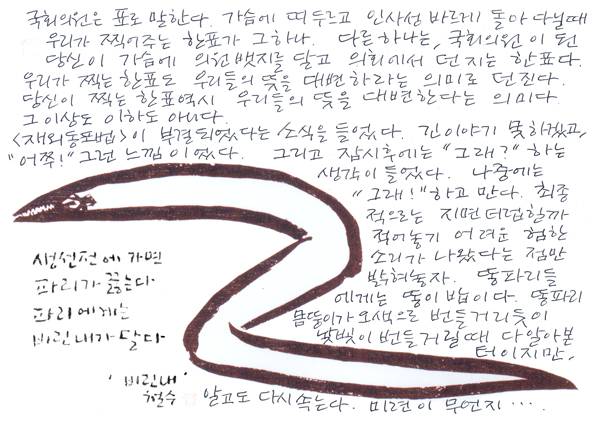 국회의원은 표로 말한다. 가슴에 띠 두르고 인사성 바르게 돌아다닐때
우리가 찍어주는 한표가 그하나. 다른하나는, 국회의원이 된
당신이 가슴에 의원뱃지를 달고 의회에서 던지는 한표다.
우리가 찍는 한표도 우리들의 뜻을 대변하라는 의미로 던진다.
당신이 찍는 한표역시 우리들의 뜻을 대변한다는 의미다.
그이상도 이하도 아니다.
<재외동포법>이 부결되었다는 소식을 들었다. 긴이야기 못하겠고,
"어쭈!" 그런 느낌이었다. 그리고 잠시후에는 "그래?" 하는
생각이 들었다. 나중에는
"그래!" 하고 만다. 최종
적으로는 지면더럽힐까
적어놓기 어려운 험한
소리가 나왔다는 점만
밝혀놓자. 똥파리들
에게는 똥이 밥이다. 똥파리
몸뚱이가 오색으로 번들거리듯이
낯빛이 번들거릴때 다알아본
터이지만,
알고도 다시속는다. 미련이 무언지….
생선전에 가면
파리가 끓는다
파리에게는
비린내가 달다
'비린내'
철수